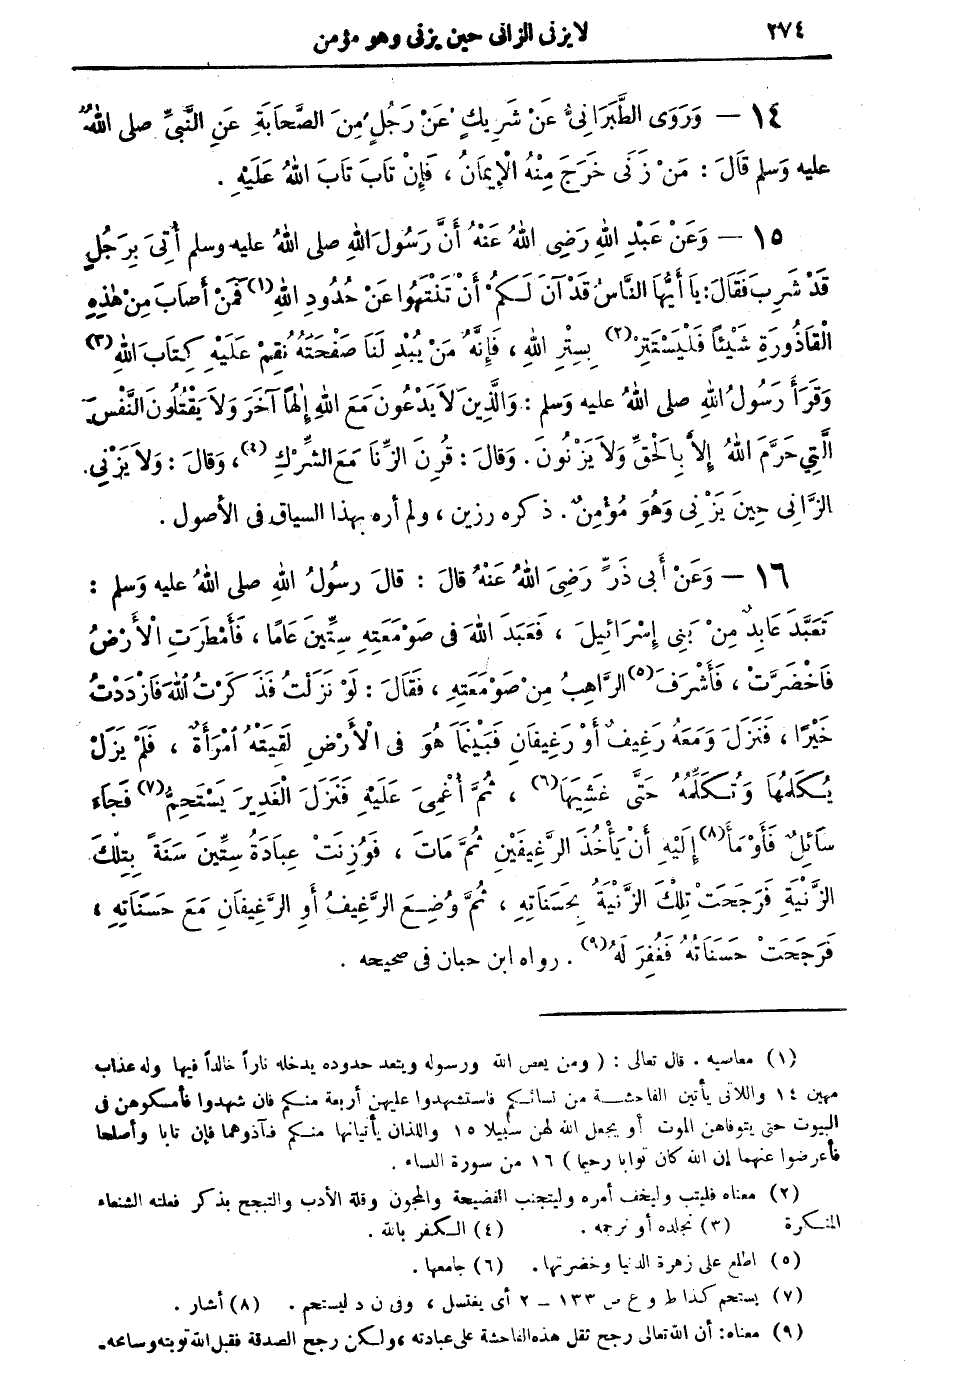 ٢٧٤ لا يزنى الزانى حين يزنى وهو مؤمن
١٤ — وَرَوَى الطَّبَرَانِىُّ عَنْ شَرِيكٍ عَنْ رَجُلٍ مِنَ الصَّحَابَةِ عَنِ النَّبِيِّ صلى اللهُ
عليه وَسلم قَالَ : مَنْ زَنَى خَرَجَ مِنْهُ الْإِيمَانُ ، فَإِنْ تَابَ تَابَ اللهُ عَلَيْهِ .
١٥ — وَعَنْ عَبْدِ اللهِ رَضِىَ اللهُ عَنْهُ أَنَّ رَسُولَ اللهِ صلى اللهُ عليه وسلم أُتِىَ بِرَجُلٍ
قَدْ شَرِبَ فَقَالَ: يَا أَيُّهَا النَّاسُ قَدْ آنَ لَكُمْ أَنْ تَنْتَهُوا عَنْ حُدُودِ اللهِ(١) فَمَنْ أَصَابَ مِنْ هٰذِهِ
الْقَاذُورَةِ شَيْئًا فَلْيَسْتَتِرْ(٢) بِسِتْرِ اللهِ ، فَإِنَّهُ مَنْ يُبْدِ لَنَا صَفْحَتَهُ نُقِمْ عَلَيْهِ كِتَابَ اللهِ(٣)
وَقَرَأَ رَسُولُ اللهِ صلى اللهُ عليه وَسلم : وَالَّذِينَ لَا يَدْعُونَ مَعَ اللهِ إِلٰهًا آخَرَ وَلَا يَقْتُلُونَ النَّفْسَ
الَّتِي حَرَّمَ اللهُ إِلاَّ بِالْحَقِّ وَلَا يَزْنُونَ . وَقَالَ : قُرِنَ الزِّنَا مَعَ الشِّرْكِ(٤) ، وَقَالَ : وَلَا يَزْنِي
الزَّانِى حِينَ يَزْنِى وَهُوَ مُؤْمِنٌ . ذكره رزين ، ولم أره بهذا السياق فى الأصول .
١٦ — وَعَنْ أَبِى ذَرٍّ رَضِىَ اللهُ عَنْهُ قالَ : قالَ رسولُ اللهِ صلى اللهُ عليه وَسلم :
تَعَبَّدَ عَابِدٌ مِنْ بَنِى إِسْرَائِيلَ ، فَعَبَدَ اللهَ فى صَوْمَعَتِهِ سِتِّينَ عَامًا ، فَأَمْطَرَتِ الْأَرْضُ
فَاخْضَرَّتْ ، فَأَشْرَفَ(٥) الرَّاهِبُ مِنْ صَوْمَعَتِهِ ، فَقَالَ : لَوْ نَزَلْتُ فَذَكَرْتُ اللهَ فَازْدَدْتُ
خَيْرًا ، فَنَزَلَ وَمَعَهُ رَغِيفٌ أَوْ رَغِيفَانِ فَبَيْنَمَا هُوَ فى الْأَرْضِ لَقِيَتْهُ امْرَأَةٌ ، فَلَمْ يَزَلْ
يُكَلِّمُهَا وَتُكَلِّمُهُ حَتَّى غَشِيَهَا(٦) ، ثُمَّ أُغْمِىَ عَلَيْهِ فَنَزَلَ الْغَدِيرَ يَسْتَحِمُّ(٧) فَجَاءَ
سَائِلٌ فَأَوْمَأَ(٨) إِلَيْهِ أَنْ يَأْخُذَ الرَّغِيفَيْنِ ثُمَّ مَاتَ ، فَوُزِنَتْ عِبَادَةُ سِتِّينَ سَنَةً بِتِلْكَ
الزَّنْيَةِ فَرَجَحَتْ تِلْكَ الزَّنْيَةُ بِحَسَنَاتِهِ ، ثُمَّ وُضِعَ الرَّغِيفُ أَوِ الرَّغِيفَانِ مَعَ حَسَنَاتِهِ ،
فَرَجَحَتْ حَسَنَاتُهُ فَغُفِرَ لَهُ(٩) . رواه ابن حبان فى صحيحه .
(١) معاصيه . قال تعالى : ( ومن يعص الله ورسوله ويتعد حدوده يدخله ناراً خالداً فيها وله عذاب
مهين ١٤ واللاتى يأتين الفاحشة من نسائكم فاستشهدوا عليهن أربعة منكم فان شهدوا فأمسكوهن فى
البيوت حتى يتوفاهن الموت أو يجعل الله لهن سبيلا ١٥ واللذان يأتيانها منكم فآذوهما فإن تابا وأصلحا
فأعرضوا عنهما إن الله كان توابا رحيما ) ١٦ من سورة النساء .
(٢) معناه فليتب وليخف أمره وليتجنب الفضيحة والمجون وقلة الأدب والتبجح بذكر فعلته الشنعاء
المنكرة (٣) نجلده أو نرجمه . (٤) الكفر بالله .
(٥) اطلع على زهرة الدنيا وخضرتها . (٦) جامعها .
(٧) يستحم كذا ط و ع ص ١٣٣ — ٢ أى يغتسل ، وفى ن د ليستحم . (٨) أشار .
(٩) معناه: أن الله تعالى رجح ثقل هذه الفاحشة على عبادته ، ولكن رجح الصدقة فقبل الله توبته وسامحه.